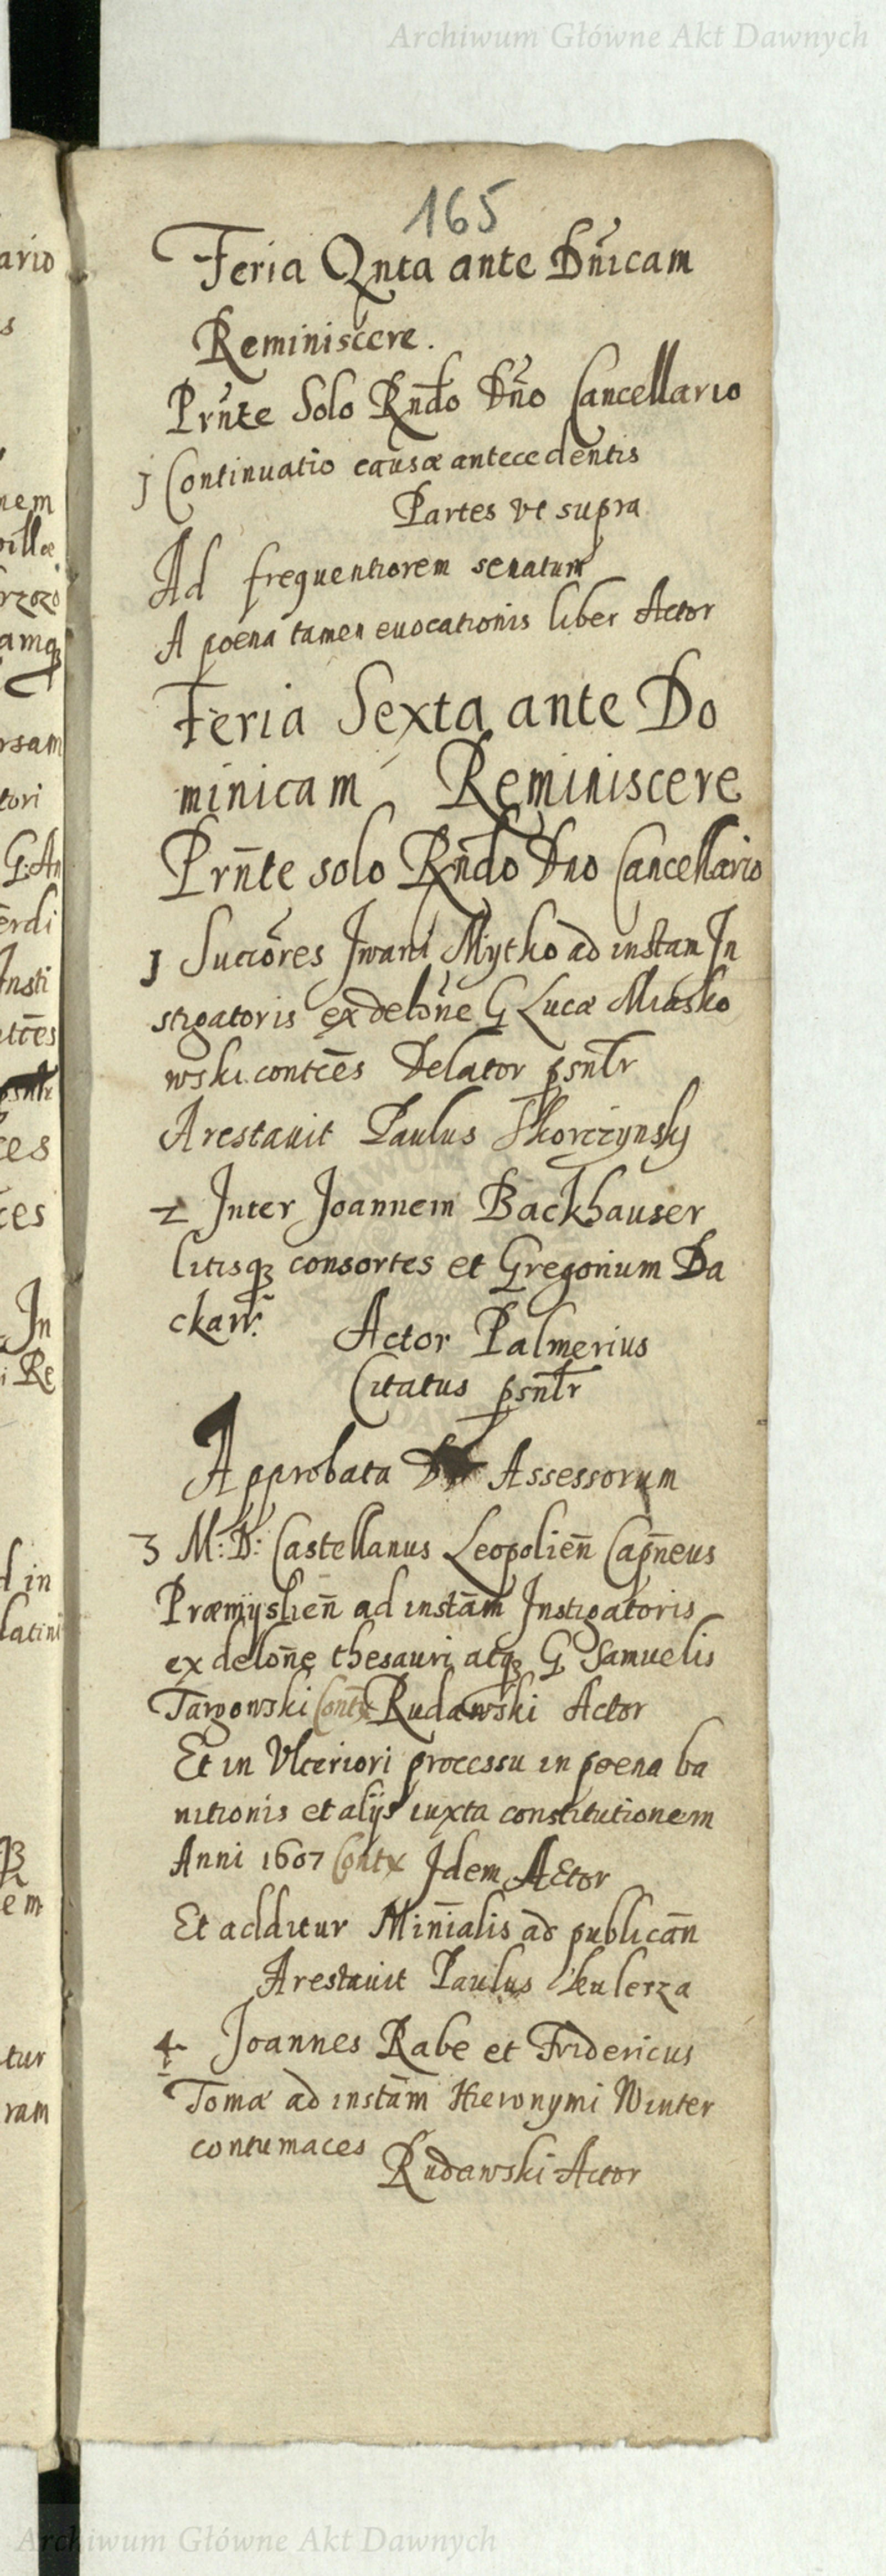 Archiwum Główne Akt Dawnych
165
Feria Qnta ante Dn̄icam
Reminiscere.
Prn̄te Solo Rn̄do Dn̄o Cancellario
1 Continuatio causæ antecedentis
Partes vt supra
Ad frequentiorem senatum
A poena tamen euocationis liber Actor
Feria Sexta ante Do
minicam Reminiscere
Prn̄te solo Rn̄do Dno Cancellario
1 Succōres Jwani Mytko ad instan In
stigatoris ex delōne G Lucæ Miasko
wski contēs Delator psnlr
Arestauit Paulus Skorczynsky
2 Inter Joannem Backhauser
litisq₃ consortes et Gregorium Da
ckaw̄.
Actor Palmerius
Citatus psnlr
Approbata Assessorum
3 M: D: Castellanus Leopolien̄ Capn̄eus
Præmÿslien̄ ad instām Instigatoris
ex delon̄e thesauri atq₃ G Samuelis
Targowski Contx Rudawski Actor
Et in Vlteriori processu in poena ba
nitionis et alijs iuxta constitutionem
Anni 1607 Contx Idem Actor
Et additur Min̄ialis ad publicān
Arestauit Paulus Kulerza
4 Joannes Rabe et Fridericus
Tomæ ad instām Hieronymi Winter
contumaces
Rudawski Actor
Archiwum Główne Akt Dawnych